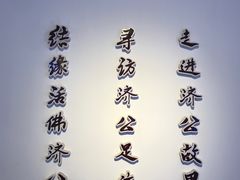 走进济公故里
寻访济公足
结缘活佛济公